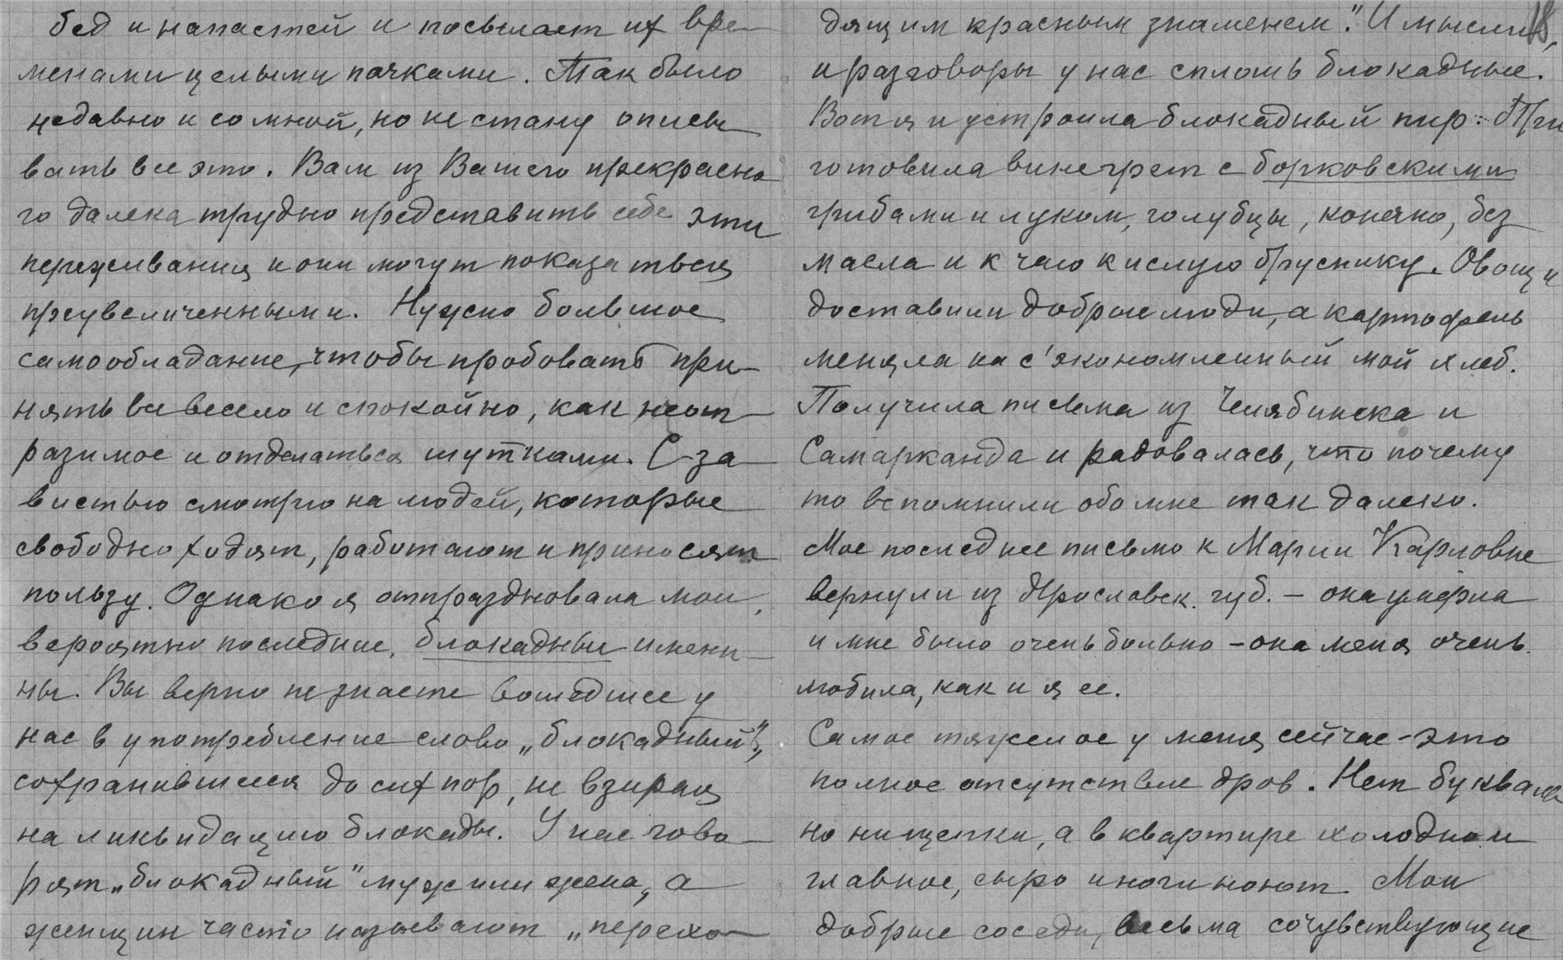 бед и напастей и посылает их вре-
менами целыми пачками. Так было
недавно и со мной, но не стану описы-
вать все это. Вам из Вашего прекрасно-
го далека трудно представить себе эти
переживания и они могут показаться
преувеличенными. Нужно большое
самообладание, чтобы пробовать при-
нять все весело и спокойно, как неот-
разимое и отделаться шутками. С за-
вистью смотрю на людей, которые
свободно ходят, работают и приносят
пользу. Однако я отпраздновала мои,
вероятно последние, блокадные имени-
ны. Вы верно не знаете вошедшее у
нас в употребление слово „блокадный",
сохранившееся до сих пор, не взирая
на ликвидацию блокады. У нас гово-
рят „блокадный" муж или жена, а
женщин часто называют „перехо-
дящим красным знаменем". И мысли 18,
и разговоры у нас сплошь блокадные.
Вот я и устроила блокадный пир: При
готовила винегрет с борковскими
грибами и луком, голубцы, конечно, без
масла и к чаю кислую бруснику. Овощи
доставили добрые люди, а картофель
меняла на с'экономленный мой хлеб.
Получила письма из Челябинска и
Самарканда и радовалась, что почему
то вспомнили обо мне так далеко.
Мое последнее письмо к Марии Карловне
вернули из Ярославск. губ. – она умерла
и мне было очень больно – она меня очень
любила, как и я ее.
Самое тяжелое у меня сейчас – это
полное отсутствие дров. Нет букваль
но ни щепки, а в квартире холодно и
главное, сыро и ноги ноют. Мои
добрые соседи, весьма сочувствующие